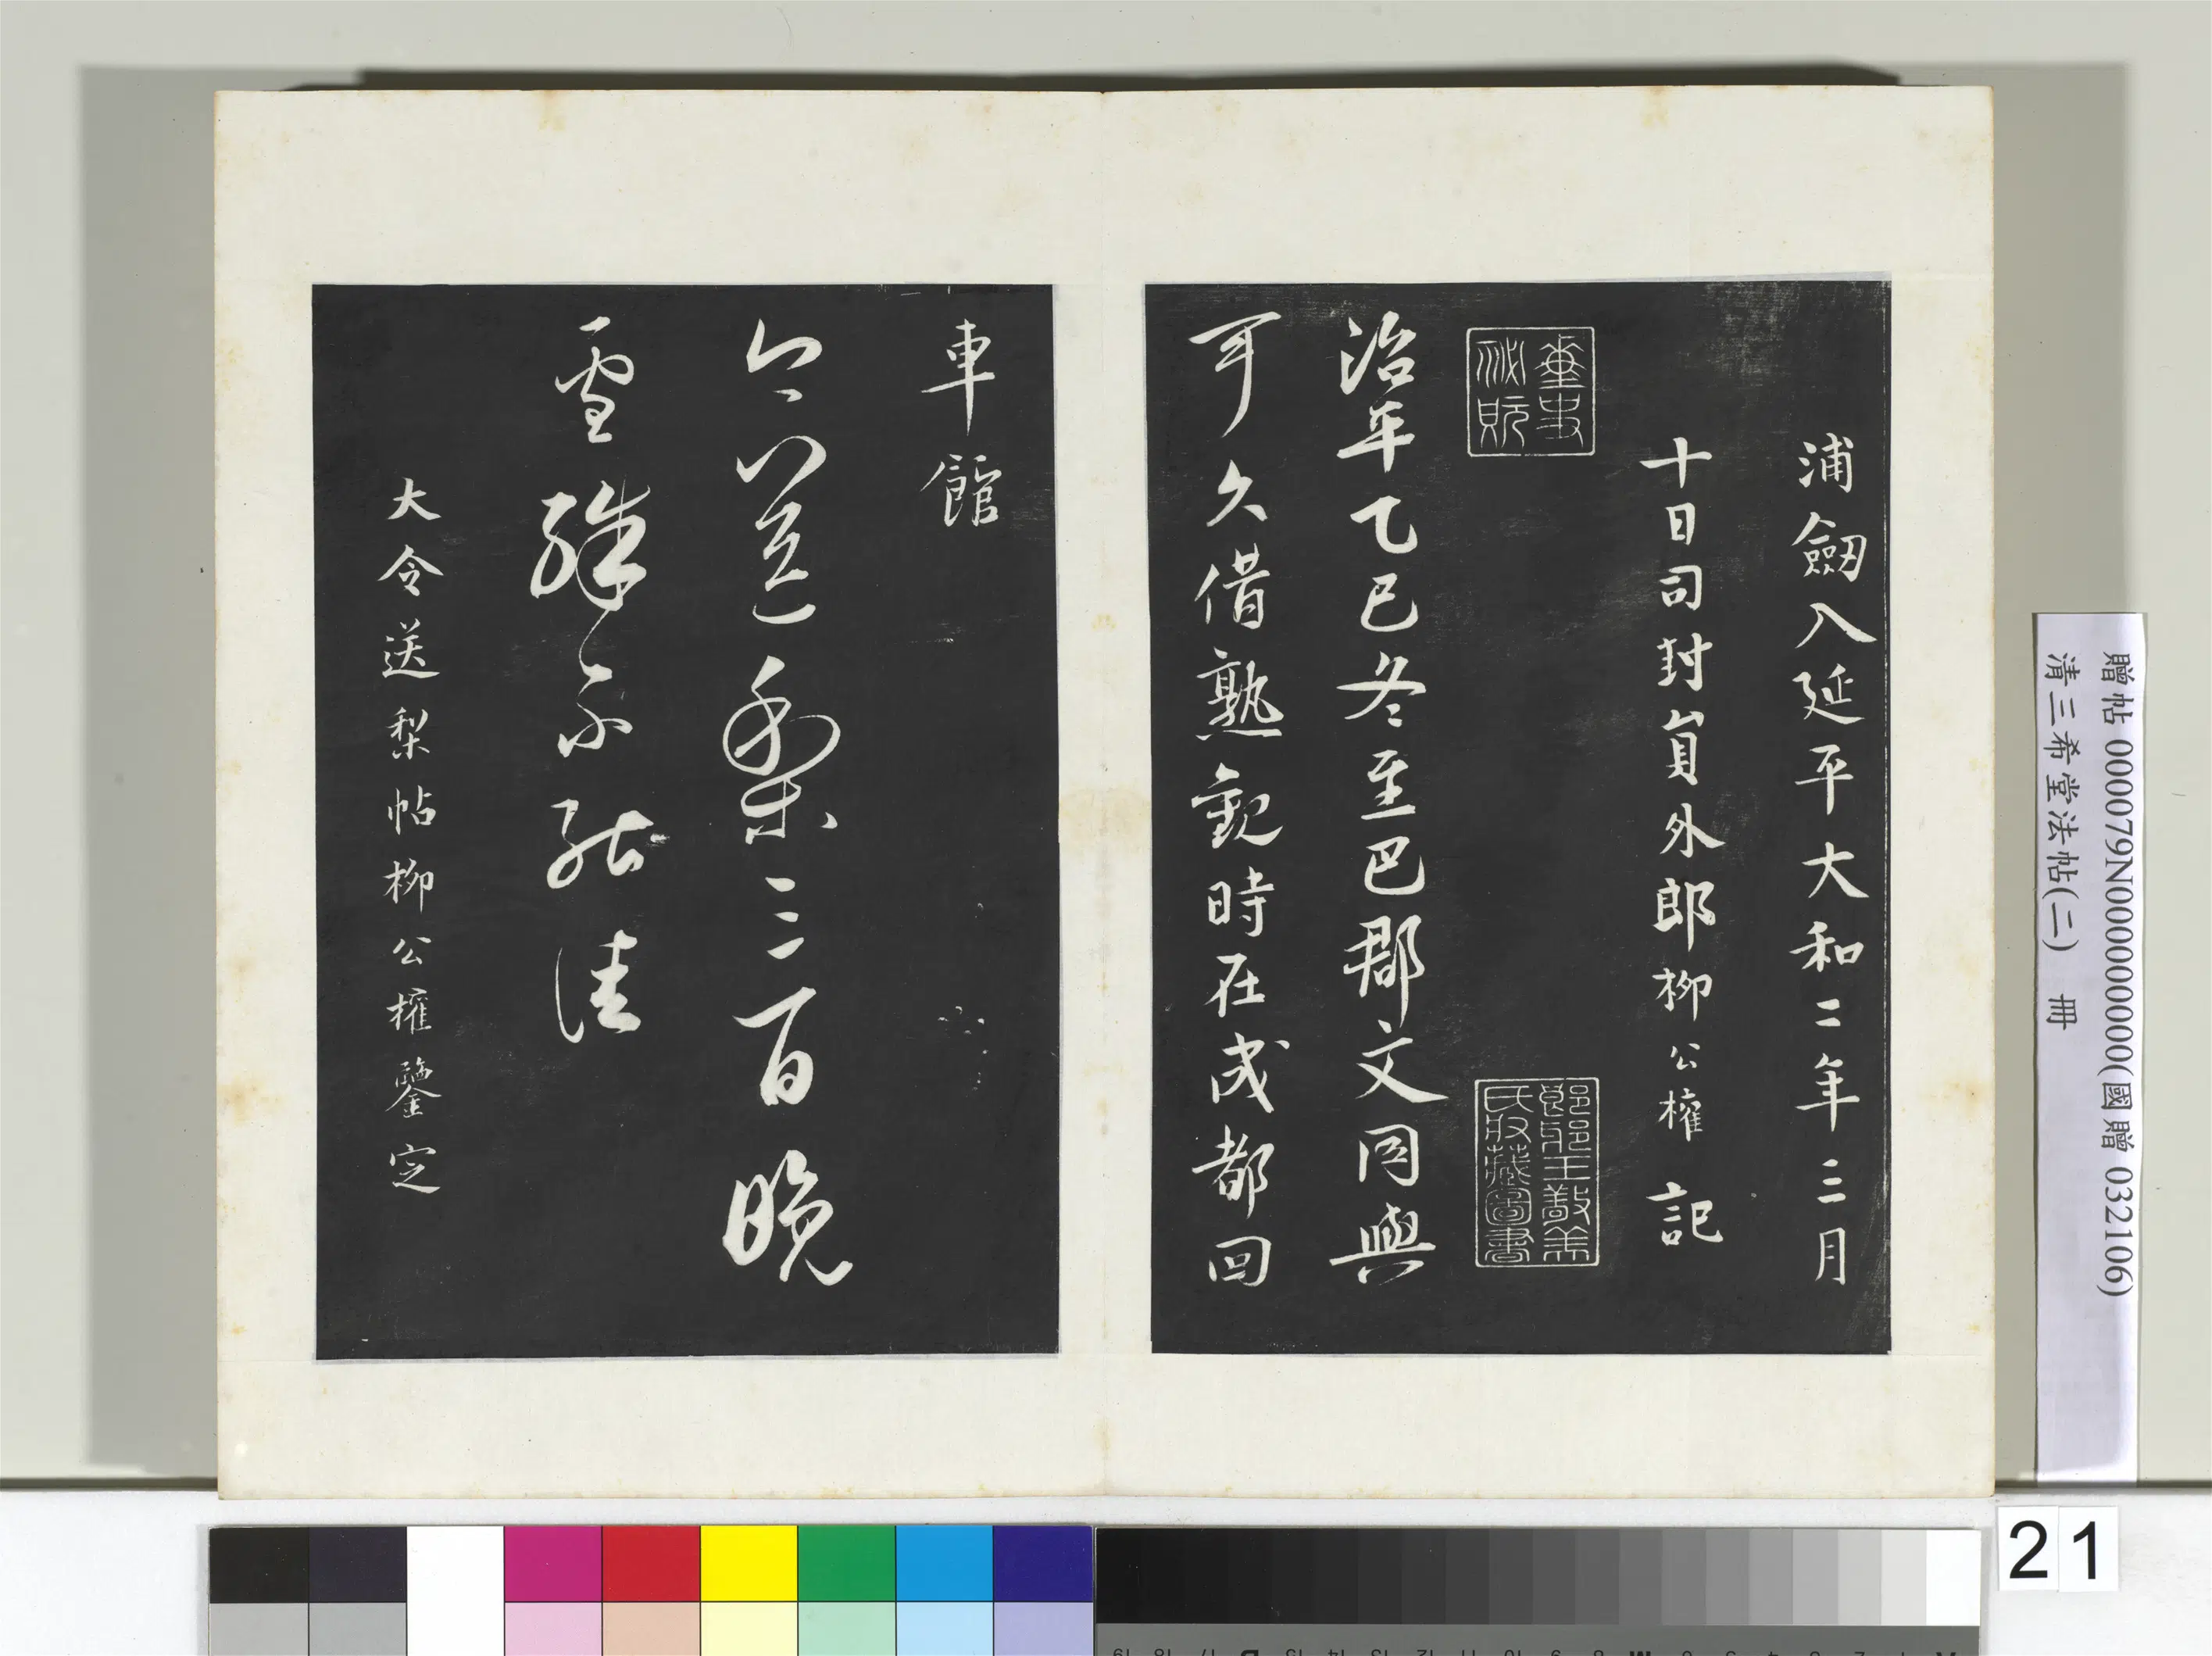 浦劔入延平大和二年三月
十日司封貟外郎柳公權記
琅邪王敬美
氏收藏圖書
治平乙巳冬至巴郡文同與
可久借熟觀時在成都回
車館
今送梨三百晚
雪殊不能佳
大令送梨帖柳公權鑒定
贈帖 000079N000000000(國贈 032106)
清三希堂法帖(二) 冊
21